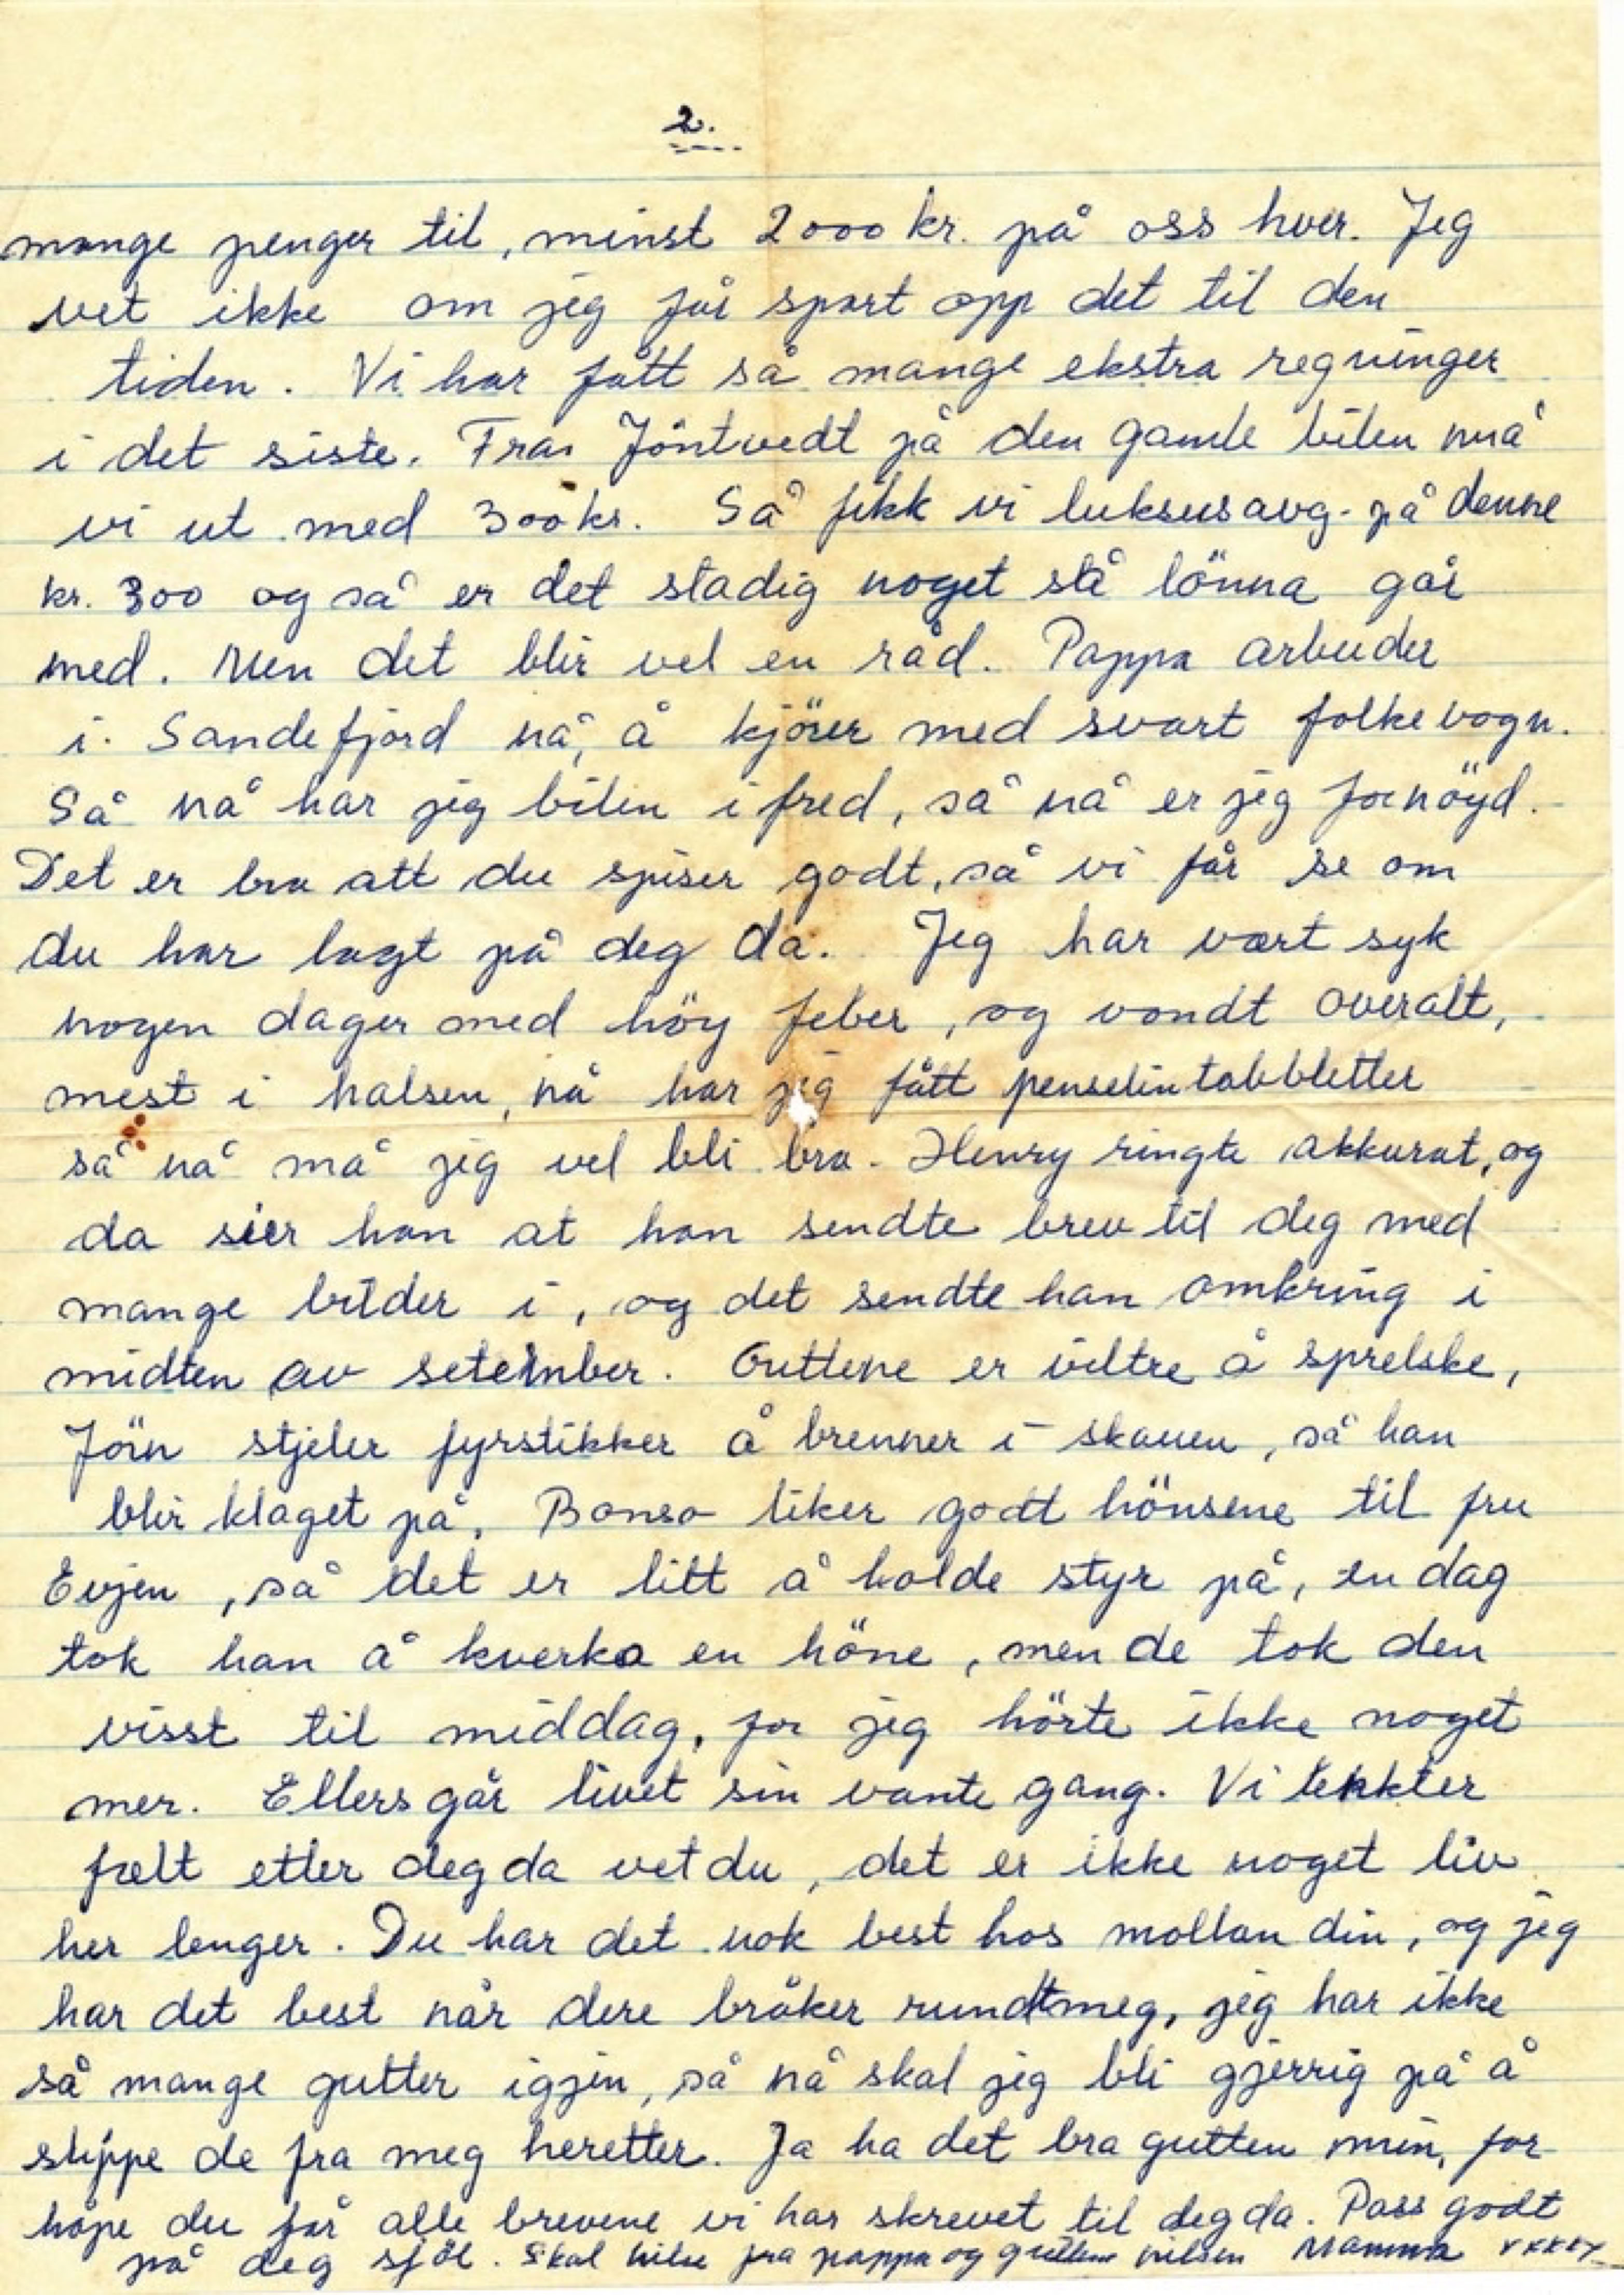 2.
mange penger til, minst 2000 kr. på oss hver. Jeg
vet ikke om jeg får spart opp det til den
tiden. Vi har fått så mange ekstra regninger
i det siste. Fra Jöntvedt på den gamle bilen må
vi ut med 300 kr. Så fikk vi luksusavg. på denne
kr. 300 og så er det stadig noget stå lönna går
med. Men det blir vel en råd. Pappa arbeider
i Sandefjord nå, å kjörer med svart folkevogn.
Så nå har jeg bilen i fred, så nå er jeg fornöyd.
Det er bra att du spiser godt, så vi får se om
du har lagt på deg da. Jeg har vært syk
nogen dager med höy feber, og vondt overalt,
mest i halsen, nå har jeg fått penselintabbletter
så nå må jeg vel bli bra. Henry ringte akkurat, og
da sier han at han sendte brev til deg med
mange bilder i, og det sendte han omkring i
midten av setember. Guttene er viltre å sprelske,
Jörn stjeler fyrstikker å brenner i skauen, så han
blir klaget på. Bonso liker godt hönsene til fru
Evjen, så det er litt å holde styr på, en dag
tok han å kverka en höne, men de tok den
visst til middag, for jeg hörte ikke noget
mer. Ellers går livet sin vante gang. Vi lenkter
fælt etter deg da vet du, det er ikke noget liv
her lenger. Du har det nok best hos mollan din, og jeg
har det best når dere bråker rundt meg, jeg har ikke
så mange gutter igjen, så nå skal jeg bli gjerrig på å
slippe de fra meg heretter. Ja ha det bra gutten min, for
håpe du får alle brevene vi har skrevet til deg da. Pass godt
på deg sjöl. Skal hilse fra pappa og guttene hilsen Mamma xxxxx